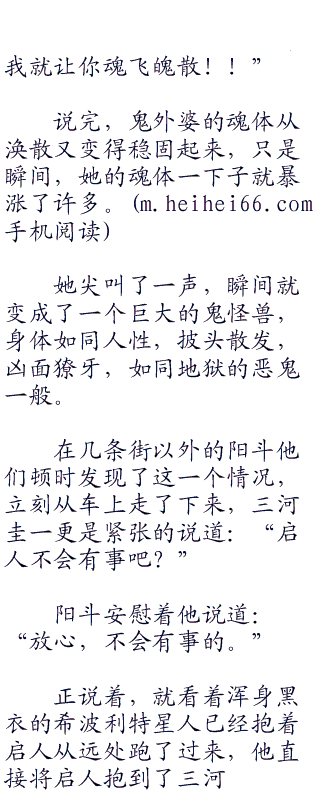 我就让你魂飞魄散！！”
说完，鬼外婆的魂体从
涣散又变得稳固起来，只是
瞬间，她的魂体一下子就暴
涨了许多。(m.heihei66.com
手机阅读)
她尖叫了一声，瞬间就
变成了一个巨大的鬼怪兽，
身体如同人性，披头散发，
凶面獠牙，如同地狱的恶鬼
一般。
在几条街以外的阳斗他
们顿时发现了这一个情况，
立刻从车上走了下来，三河
圭一更是紧张的说道：“启
人不会有事吧？”
阳斗安慰着他说道：
“放心，不会有事的。”
正说着，就看着浑身黑
衣的希波利特星人已经抱着
启人从远处跑了过来，他直
接将启人抱到了三河